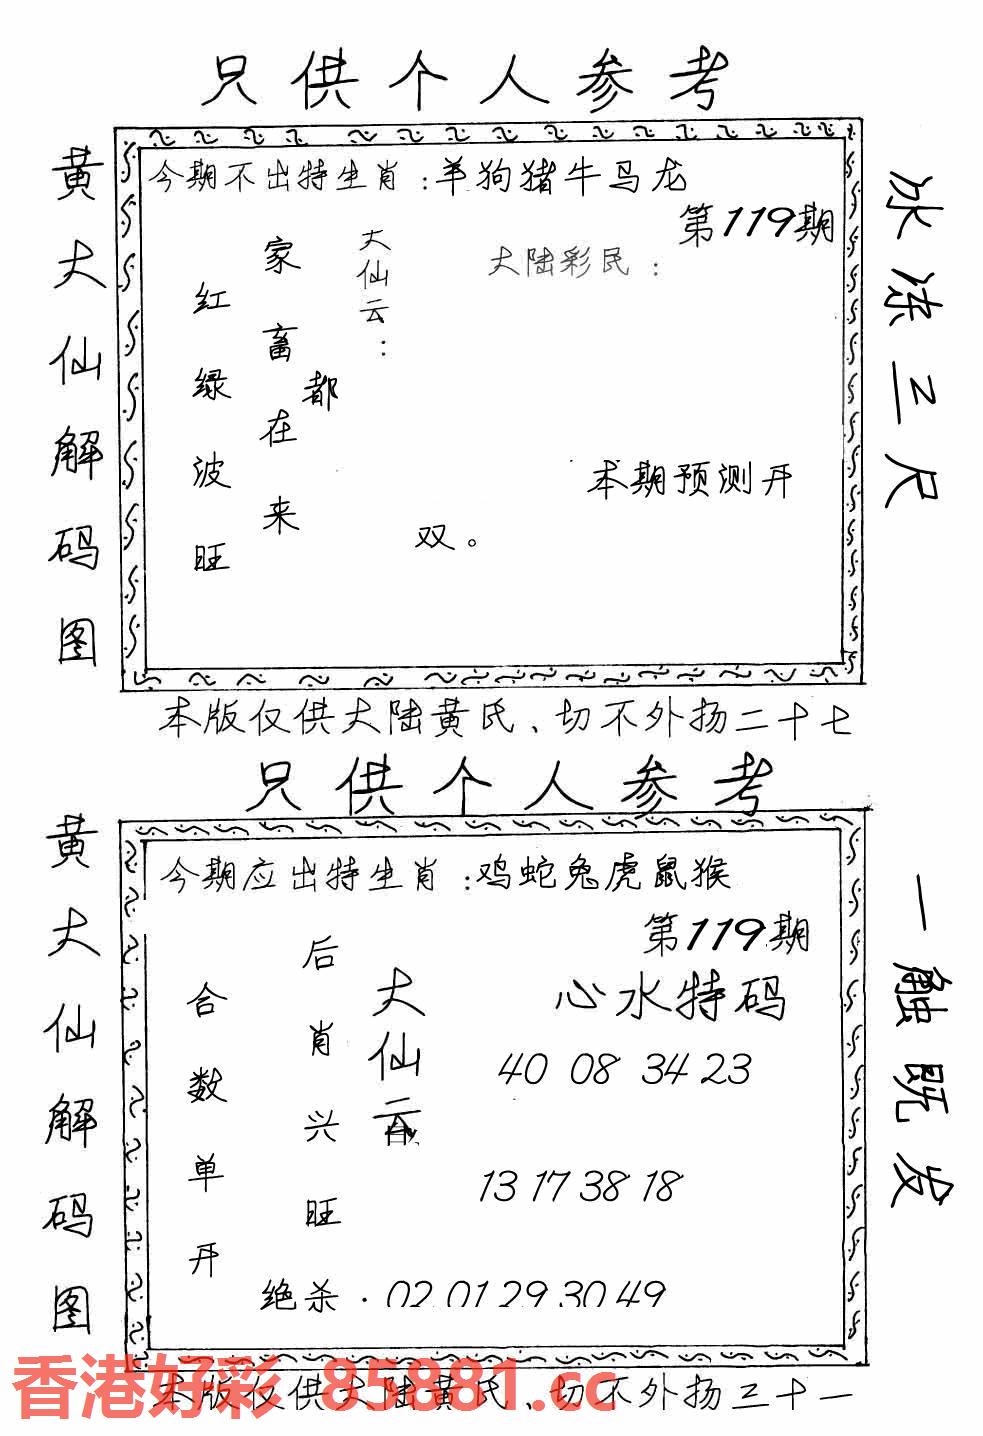 只供个人参考
黄大仙解码图
今期不出特生肖:羊狗猪牛马龙
第119期
冰冻三尺
大陆彩民:
大仙云:
家畜都在来
红绿波旺
本期预测开
双。
本版仅供大陆黄氏、切不外扬二十七
只供个人参考
黄大仙解码图
今期应出特生肖:鸡蛇兔虎鼠猴
第119期
一触既发
心水特码
40 08 34 23
13 17 38 18
大仙云
后肖兴旺
合数单开
绝杀.02 01 29 30 49
香港好彩 85881.cc
本版仅供大陆黄氏、切不外扬三十一